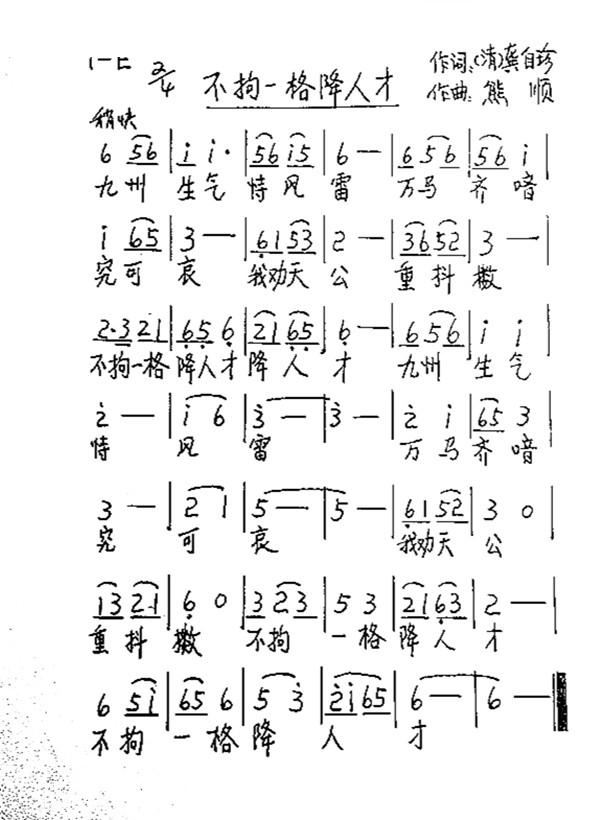 2/4 不拘一格降人才 作词:(清)龚自珍
作曲:熊 顺
稍快
6 56 | i i· | 56 i5 | 6 — | 6 56 | 56 i |
九州 生气 恃风 雷 万马 齐 喑
i 65 | 3 — | 61 53 | 2 — | 36 52 | 3 — |
究可 哀 我劝天 公 重 抖 擞
2·3 21 | 65 6 | 21 65 | 6 — | 6 56 | i i |
不拘一格 降人才 降 人 才 九州 生 气
2 — | i 6 | 3 — | 3 — | 2 i | 65 3 |
恃 风 雷 万 马 齐 喑
3 — | 2 1 | 5 — | 5 — | 61 52 | 3 0 |
究 可 哀 我劝天 公
13 2·1 | 6 0 | 3 23 | 5 3 | 21 63 | 2 — |
重 抖 擞 不拘 一 格 降 人 才
6 5i | 65 6 | 5 3 | 2i 65 | 6 — | 6 — ‖
不 拘 一 格 降 人 才